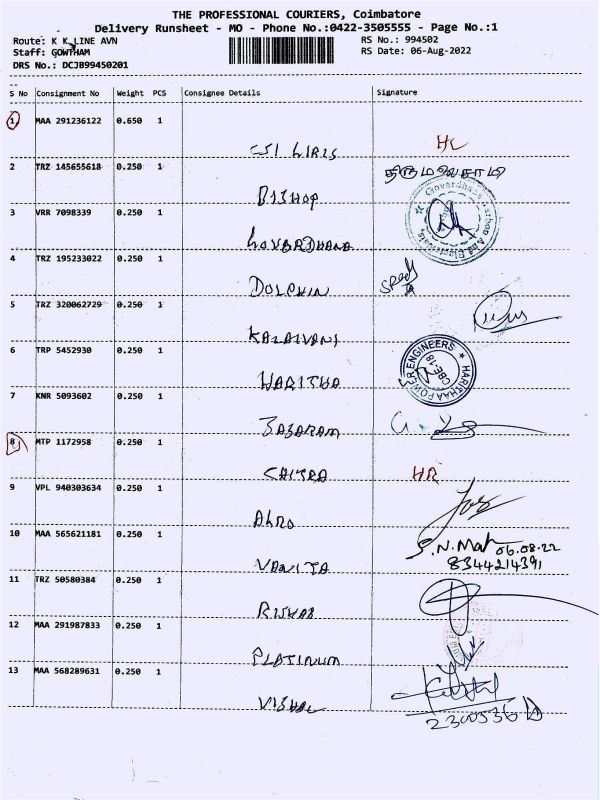 THE PROFESSIONAL COURIERS, Coimbatore
Delivery Runsheet - MO - Phone No.:0422-3505555 - Page No.:1
Route: K K LINE AVN
RS No.: 994502
Staff: GOWTHAM
RS Date: 06-Aug-2022
DRS No.: DCJB99450201
S No Consignment No Weight PCS Consignee Details Signature
1 MAA 291236122 0.650 1
HC
2 TRZ 145655618 0.250 1
திருமலைசாமி
BISHOP
3 VRR 7098339 0.250 1
GOVERDHANA
4 TRZ 195233022 0.250 1
DOLPHIN
5 TRZ 320062729 0.250 1
KALAIVANI
6 TRP 5452930 0.250 1
HARITHA POWER ENGINEERS
CBE-18
HARITHA
7 KNR 5093602 0.250 1
JAYARAM
8 MTP 1172958 0.250 1
CHITRA HR
9 VPL 940303634 0.250 1
10 MAA 565621181 0.250 1
S.N.Mah 06.08.22
8344214391
VANITA
11 TRZ 50580384 0.250 1
12 MAA 291987833 0.250 1
PLATINUM
13 MAA 568289631 0.250 1
VISHAL